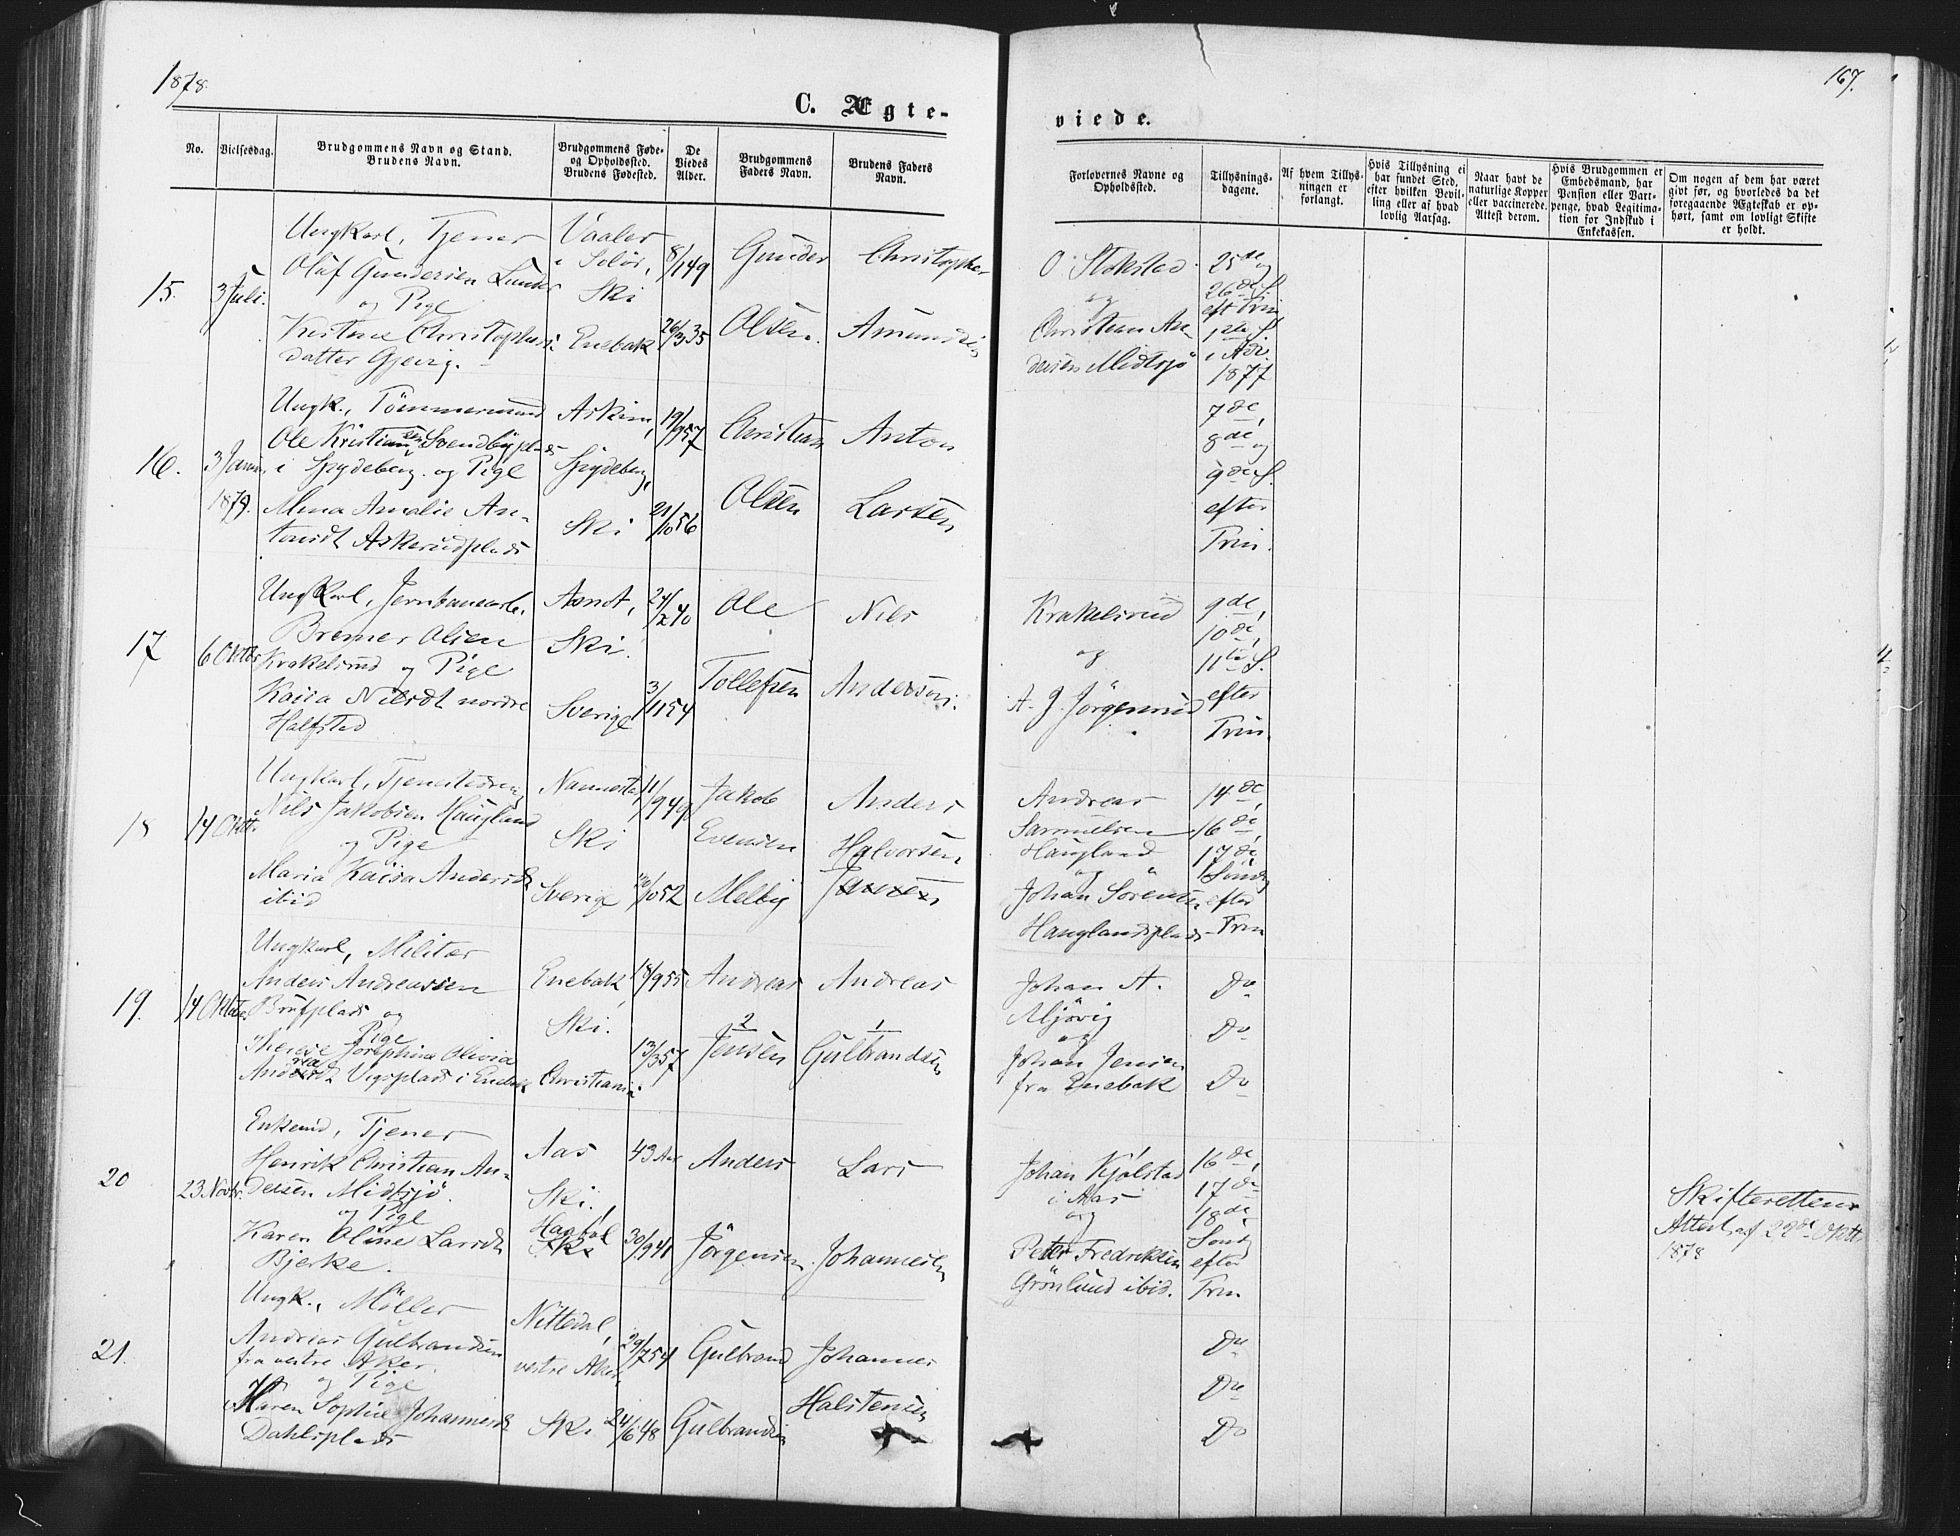 1878.
167.
C. Ægte-
viede.
No.
Vielsesdag.
Brudgommens Navn og Stand.
Brudens Navn.
Brudgommens Føde-
og Opholdssted.
Brudens Fødested.
De
Viedes
Alder.
Brudgommens
Faders Navn.
Brudens Faders
Navn.
Forlovernes Navne og
Opholdssted.
Tillysnings-
dagene.
Af hvem Tillys-
ningen er
forlangt.
Hvis Tillysning ei
har fundet Sted,
efter hvilken Bevil-
ling eller af hvad
lovlig Aarsag.
Naar havt de
naturlige Kopper
eller vaccinerede.
Attest derom.
Hvis Brudgommen er
Embedsmand, har
Pension eller Vart-
penge, hvad Legitima-
tion for Indskud i
Enkekassen.
Om nogen af dem har været
givt før, og hvorledes da det
foregaaende Ægteskab er op-
hørt, samt om lovligt Skifte
er holdt.
15.
3 Juli.
Ungkarl, Tjener
Olaf Gundersen Lunder
og Pige
Kristine Christophers
datter Gjevig.
Vaaler
i Solør,
Ski
Enebak
8/1 49
26/3 35
Gunder
Olsen.
Christopher
Amundsen
O. Stokstad
og
Christian An-
dersen Midtsjö
25de og
26de S.
eft Trin
1ste S.
i Adv.
1877
16.
3 Janu.
1879.
Ungk., Tömmermand
Ole Kristiansen Svendbyplads
i Spydeberg. og Pige
Mina Amalie An-
tonsdt Askerudplads
Askim,
Spydeberg,
Ski
19/9 57
21/10 56
Christian
Olsen
Anton
Larsen
7de,
8de og
9de S.
efter
Trin.
17
6 Oktbr
Ungkarl, Jernbanearb.
Bremer Olsen
Krakelsrud og Pige
Kaisa Nilsdt nordre
Halfstad
Asnæs,
Ski.
Sverige
24/2 40
3/11 54
Ole
Tollefsen
Nils
Anderson.
Krakelsrud
og
A. J. Jörgensrud
9de,
10de,
11te S.
efter
Trin.
18
14 Oktbr.
Ungkarl, Tjenestedreng
Nils Jakobsen Haugland
og Pige
Maria Kaisa Andersdt
ibid
Nannestad,
Ski
Sverige
11/9 49
/10 52
Jakob
Evensen
Melby
Anders
Halvorsen
Andreas
Samuelsen
Haugland
og
Johan Sorensen
Hauglandsplads
14de,
16de,
17de
Sönd
efter
Trin
19.
14 Oktbr
Ungkarl, Militær
Anders Andreassen
Brufplads og
Pige
Therese Josephina Olivia
Andreasdt Vigsplads i Enebak
Enebak,
Ski.
Christiania.
18/9 55
13/3 57
Andreas
2
Jensen
Andreas
1
Gulbrandsen
Johan A.
Mjövig
og
Johan Jensen
fra Enebak
Do
Do
Do
20
23 Novbr.
Enkemd, Tjener
Henrik Christian An-
dersen Midtsjö.
og Pige
Karen Oline Larsdt
Bjerke.
Aas
Ski,
Hagdal
43 Aar
30/9 41
Anders
Jörgensen.
Lars
Johannesen
Johan Kjölstad
i Aas
og
Peter Fredriksen
Grönlund ibid.
16de,
17de
18de
Sönd
efter
Trin.
Skifterettens
Attest af 22de Oktbr
1878
21.
Ungk., Möller
Andreas Gulbrandsen
fra vestre Aker.
og Pige
Maren Sophie Johannesdt
Dahlsplads
Nittedal,
vestre Aker
Ski
29/7 54
24/6 48
Gulbrand
Gulbrandsen
Johannes
Halstensen
Do
Do
Do